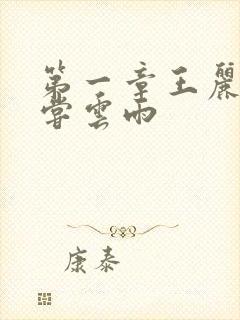 第一章王麗
嘗雲雨
康泰